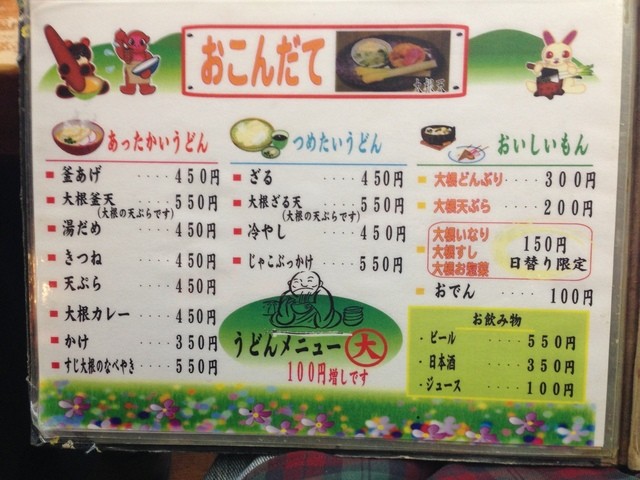 おこんだて
大根天
あったかいうどん
釜あげ ････ 450円
大根釜天 ････ 550円
(大根の天ぷらです)
湯だめ ････ 450円
きつね ････ 450円
天ぷら ････ 450円
大根カレー ････ 450円
かけ ････ 350円
すじ大根のなべやき ････ 550円
つめたいうどん
ざる ････ 450円
大根ざる天 ････ 550円
(大根の天ぷらです)
冷やし ････ 450円
じゃこぶっかけ ････ 550円
うどんメニュー大
100円増しです
おいしいもん
大根どんぶり ････ 300円
大根天ぷら ････ 200円
大根いなり
大根すし
大根お惣菜
150円
日替り限定
おでん ････ 100円
お飲み物
・ビール ････ 550円
・日本酒 ････ 350円
・ジュース ････ 100円